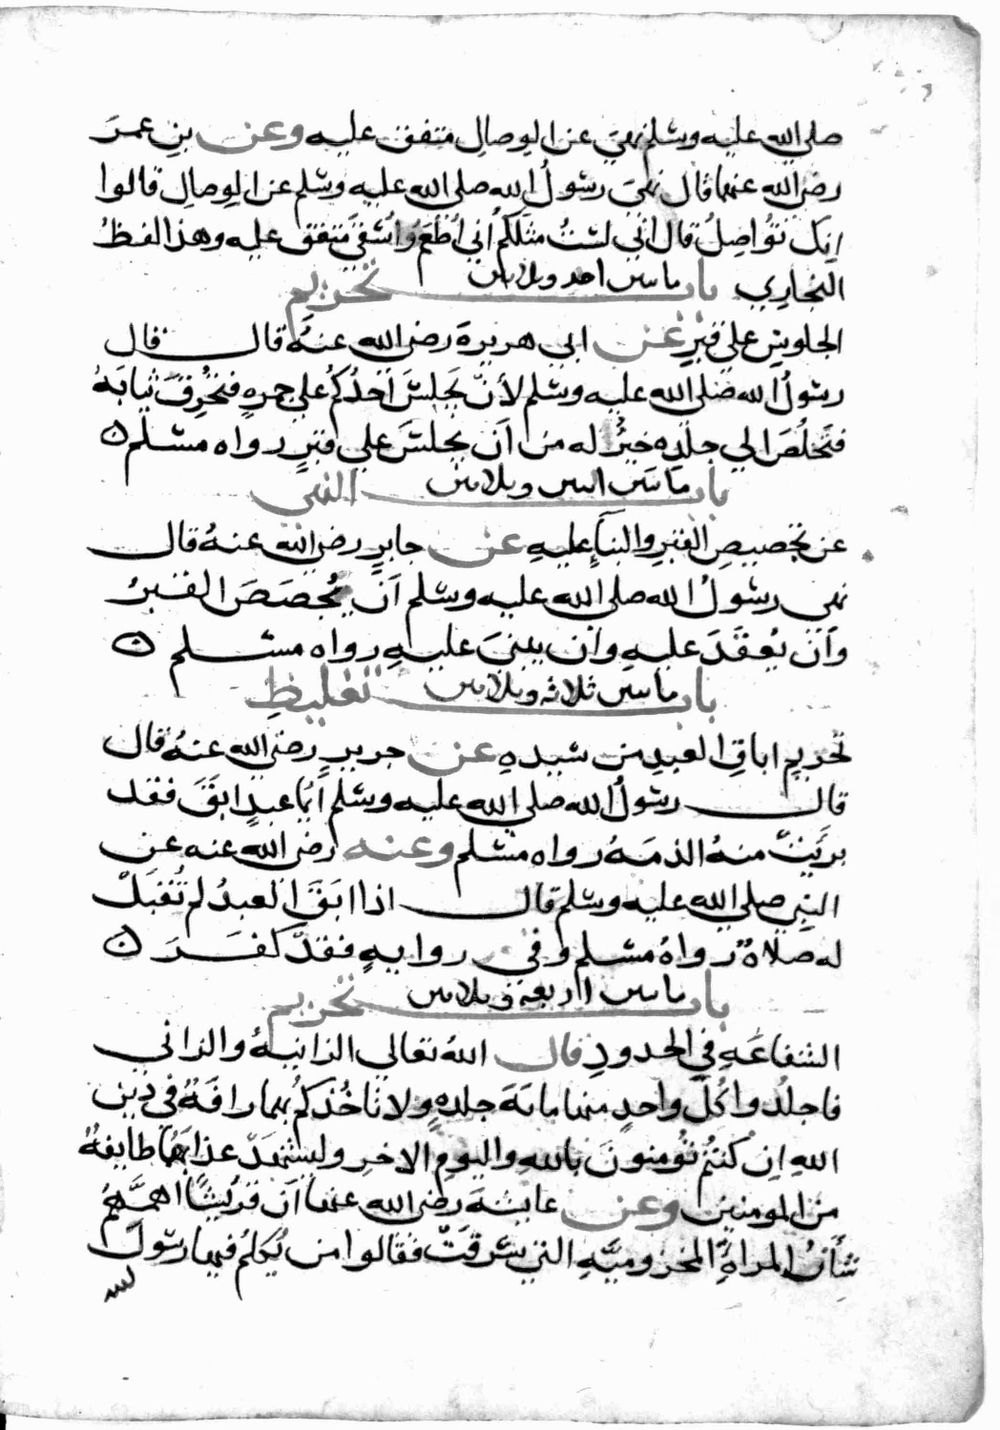 صلى الله عليه وسلم نهى عن الوصال متفق عليه وعن بن عمر
رضي الله عنهما قال نهى رسول الله صلى الله عليه وسلم عن الوصال قالوا
انك تواصل قال اني لست مثلكم اني اطعم واسقى متفق عليه وهذا لفظ
البخاري باب ماىىں احد وىلاىىں تحريم
الجلوس على قبر عن ابي هريرة رضي الله عنه قال قال
رسول الله صلى الله عليه وسلم لان يجلس احدكم على جمرة فتحرق ثيابه
فتخلص الى جلده خير له من ان يجلس على قبر رواه مسلم ه
باب ماىىں اىىىں وىلاىىں النهي
عن تجصيص القبر والبناء عليه عن جابر رضي الله عنه قال
نهى رسول الله صلى الله عليه وسلم ان يجصص القبر
وان يقعد عليه وان يبنى عليه رواه مسلم ه
باب ماىىں ثلاثه وىلاىىں تغليظ
تحريم اباق العبد من سيده عن جرير رضي الله عنه قال
قال رسول الله صلى الله عليه وسلم ايما عبد ابق فقد
برئت منه الذمة رواه مسلم وعنه رضي الله عنه عن
النبي صلى الله عليه وسلم قال اذا ابق العبد لم تقبل
له صلاة رواه مسلم وفي رواية فقد كفر ه
باب ماىىں اربعة وىلاىىں تحريم
الشفاعة في الحدود قال الله تعالى الزانية والزاني
فاجلدوا كل واحد منهما ماية جلدة ولا تاخذكم بهما رافة في دين
الله ان كنتم تومنون بالله واليوم الاخر وليشهد عذابهما طايفة
من المومنين وعن عايشة رضي الله عنها ان قريشا اهمهم
شأن المراة المخزومية التي سرقت فقالوا من يكلم فيها رسول